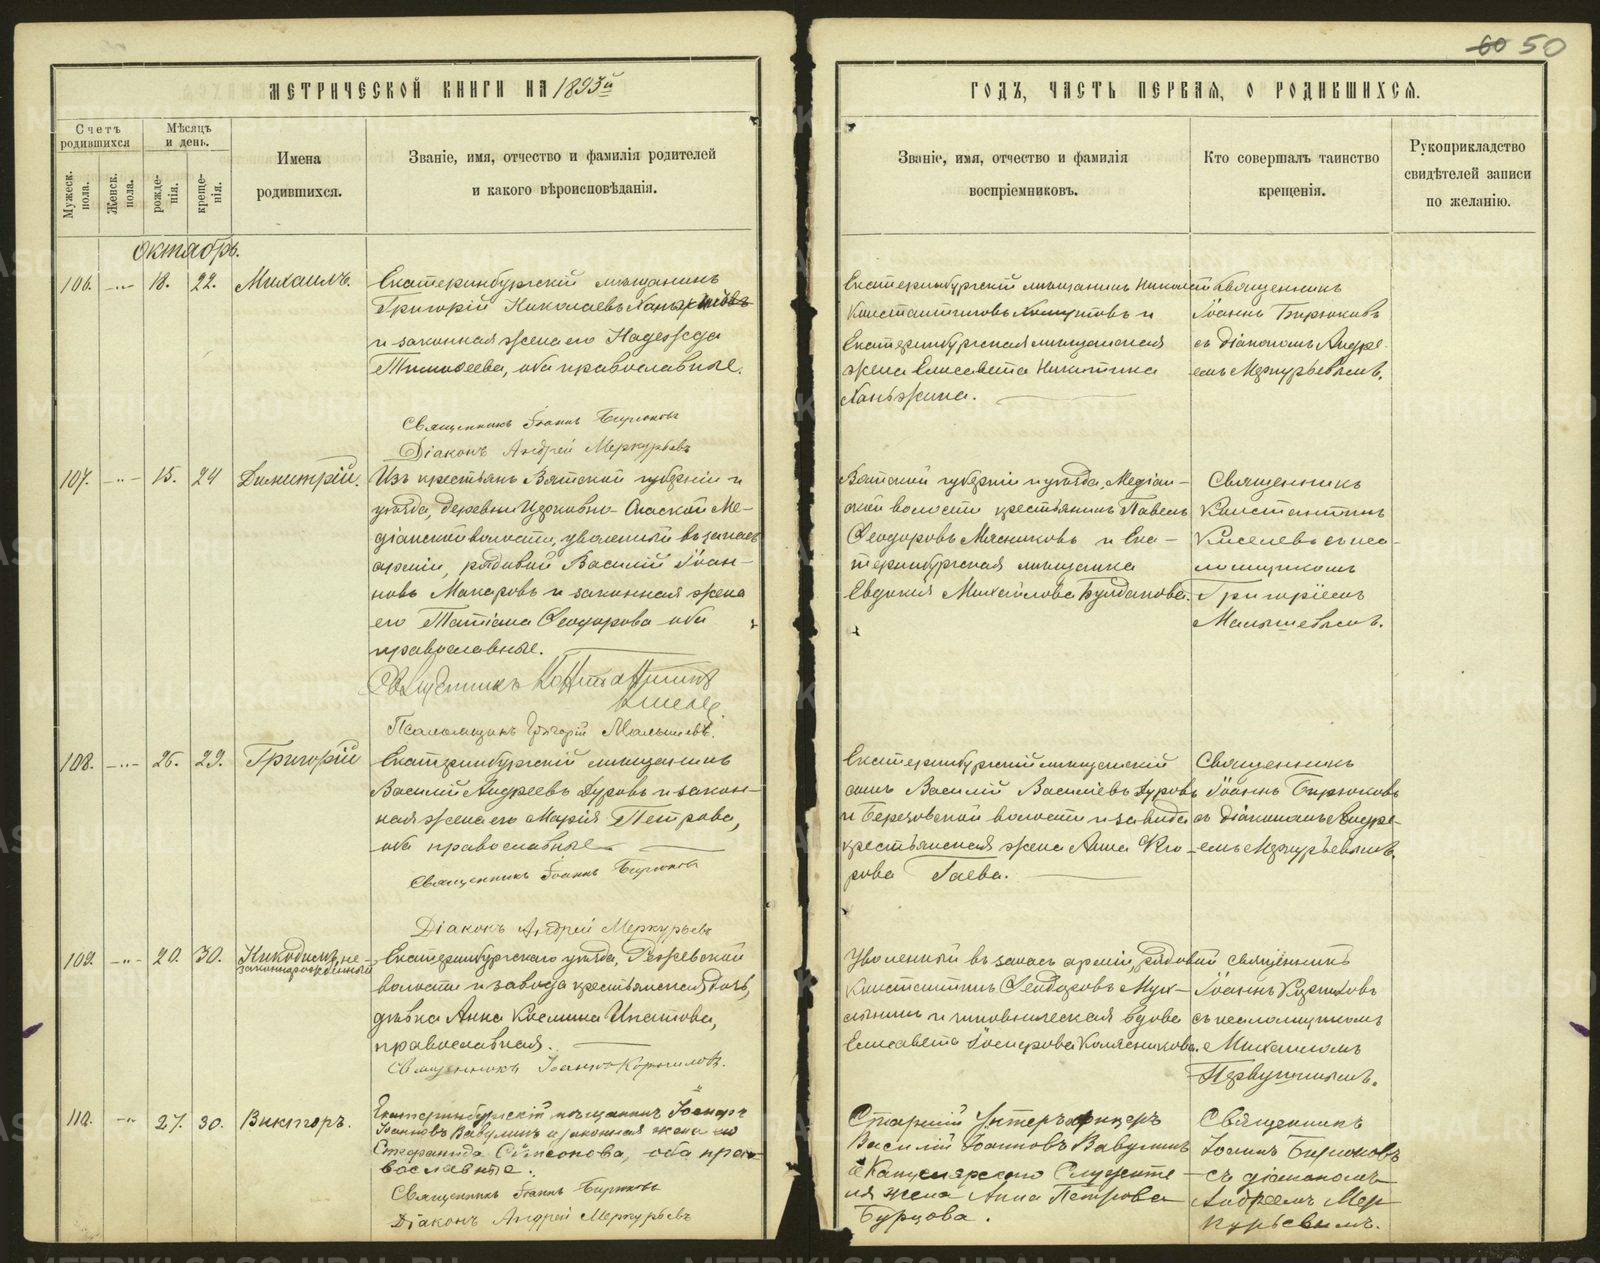 60 50
МЕТРИЧЕСКОЙ КНИГИ НА 1893й
ГОДЪ, ЧАСТЬ ПЕРВАЯ, О РОДИВШИХСЯ.
Счетъ родившихся
Мужеск. пола.
Женск. пола.
Мѣсяцъ и день.
рожде-нія.
креще-нія.
Имена
родившихся.
Званіе, имя, отчество и фамилія родителей
и какого вѣроисповѣданія.
Званіе, имя, отчество и фамилія
воспріемниковъ.
Кто совершалъ таинство
крещенія.
Рукоприкладство
свидѣтелей записи
по желанію.
Октябрь.
106. -"- 18. 22. Михаилъ.
Екатеринбургскій мѣщанинъ
Григорій Николаевъ
и законная жена его Надежда
Тимоѳеева, оба православные.
Священникъ Іоаннъ Бирюковъ
Діаконъ Андрей Меркурьевъ
Екатеринбургскій мѣщанинъ Николай
Константиновъ и
Екатеринбургская мѣщанская
жена Елисавета Никитина
Ханьжина.
Священникъ
Іоаннъ Бирюковъ
съ діакономъ Андре-
емъ Меркурьевымъ.
107. -"- 15. 24 Димитрій.
Изъ крестьянъ Вятской губерніи и
уѣзда, деревни Церковно-
діанской волости, уволенный въ запасъ
арміи, рядовой Василій Іоан-
новъ Макаровъ и законная жена
его Татіана Ѳеодорова оба
православные.
Священникъ Константинъ
Киселевъ
Псаломщикъ Григорій Малышевъ.
Вятской губерніи и уѣзда, Медіан-
ской волости крестьянинъ Павелъ
Ѳеодоровъ Мясниковъ и Ека-
теринбургская мѣщанка
Евдокія Михайлова Булдакова.
Священникъ
Константинъ
Киселевъ съ пса-
ломщикомъ
Григоріемъ
Малышевымъ.
108. -"- 26. 29. Григорій
Екатеринбургскій мѣщанинъ
Василій Андреевъ Дуровъ и закон-
ная жена его Марія Петрова,
оба православные
Священникъ Іоаннъ Бирюковъ
Діаконъ Андрей Меркурьевъ
Екатеринбургскій мѣщанскій
сынъ Василій Василіевъ Дуровъ
и Березовской волости и завода
крестьянская жена Анна Ки-
рова Гаева.
Священникъ
Іоаннъ Бирюковъ
съ діакономъ Андре-
емъ Меркурьевымъ.
109. -"- 20. 30. Никодимъ, не-
законнорожденный
Екатеринбургскаго уѣзда, Режевской
волости и завода крестьянская дочь,
дѣвка Анна Космина Ипатова,
православная.
Священникъ Іоаннъ Корниловъ.
Уволенный въ запасъ арміи, рядовой
Константинъ Ѳеодоровъ
и чиновническая вдова
Елисавета Колясникова.
Священникъ
Іоаннъ Корниловъ
съ псаломщикомъ
Михаиломъ
Первушинымъ.
110. -"- 27. 30. Викторъ.
Екатеринбургскій мѣщанинъ
Іоанновъ Вавулинъ и законная жена его
Стефанида Симеонова, оба пра-
вославные.
Священникъ Іоаннъ Бирюковъ
Діаконъ Андрей Меркурьевъ
Старшій Унтеръ-офицеръ
Василій Іоанновъ Вавулинъ
и Канцелярскаго Служите-
ля жена Анна Петрова
Бурцова.
Священникъ
Іоаннъ Бирюковъ
съ діакономъ
Андреемъ Мер
курьевымъ.